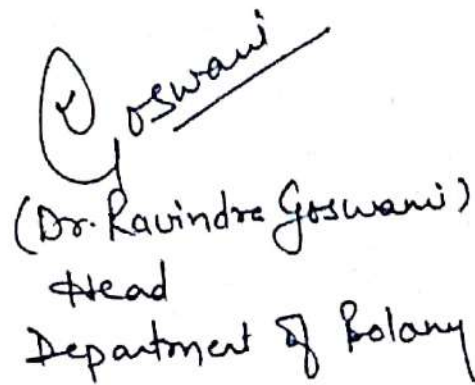 Goswami
(Dr. Ravindra Goswami)
Head
Department of Botany